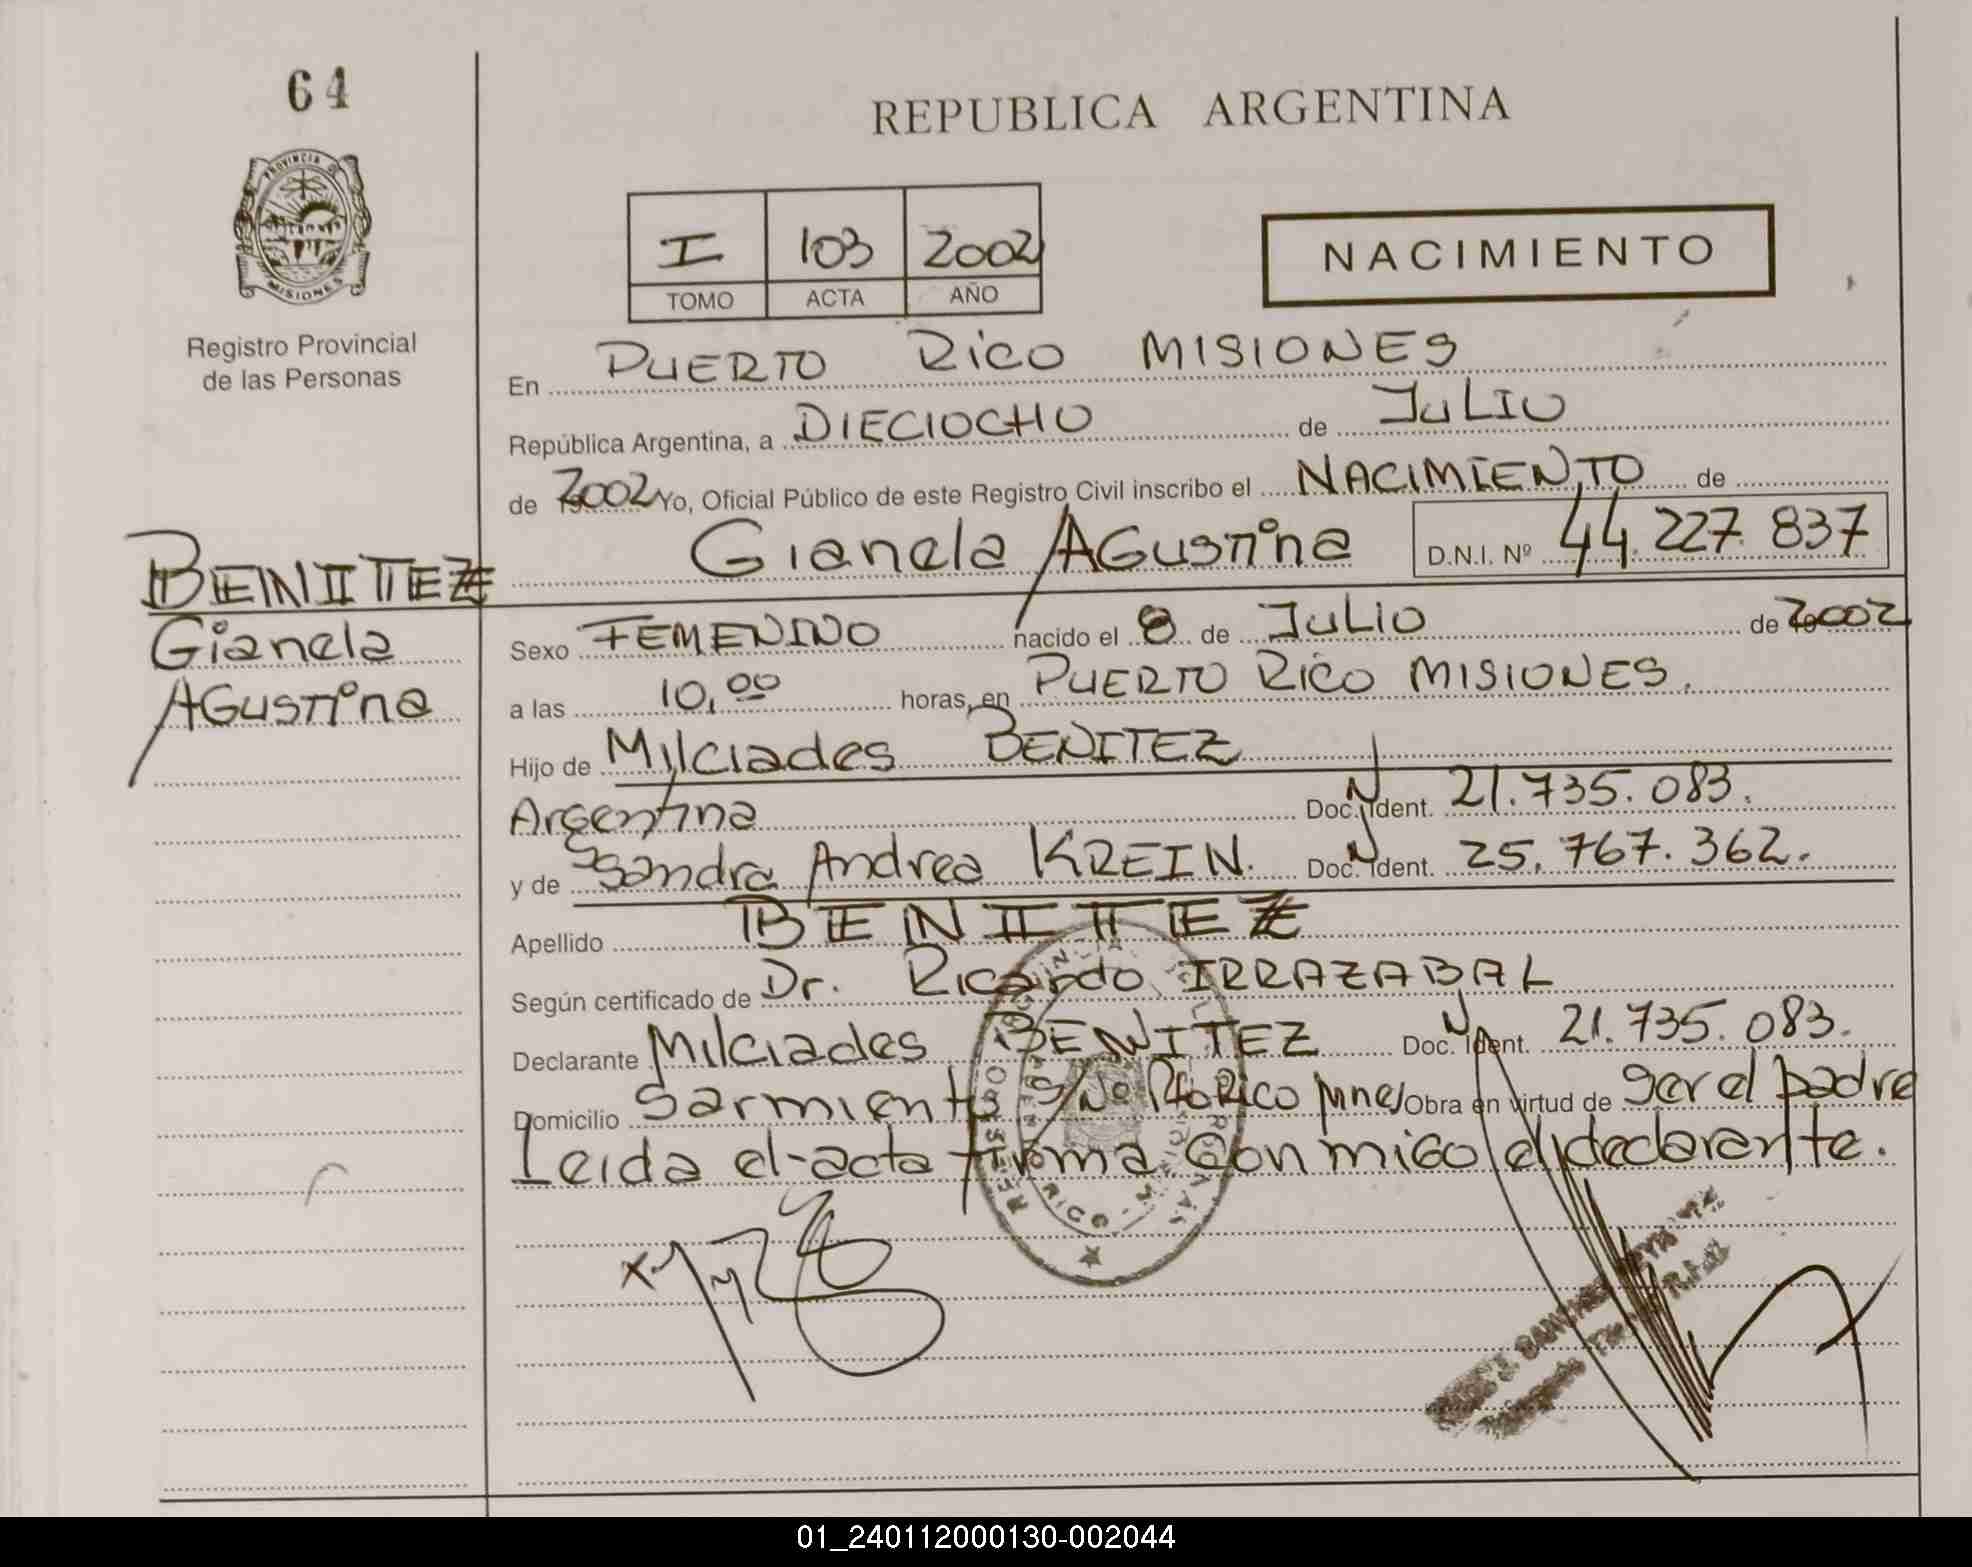 64
PROVINCIA DE
MISIONES
Registro Provincial
de las Personas
BENITEZ
Gianela
Agustina
REPUBLICA ARGENTINA
I 103 2002
TOMO ACTA AÑO
NACIMIENTO
En PUERTO RICO MISIONES
República Argentina, a DIECIOCHO de JULIO
de 2002 Yo, Oficial Público de este Registro Civil inscribo el NACIMIENTO de
Gianela Agustina D.N.I. Nº 44.227.837
Sexo FEMENINO nacido el 8 de JULIO de 2002
a las 10,00 horas, en PUERTO RICO MISIONES.
Hijo de Milciades BENITEZ
Argentina Doc. Ident. N 21.735.083.
y de Sandra Andrea KREIN. Doc. Ident. N 25.767.362.
Apellido BENITEZ
Según certificado de Dr. Ricardo IRRAZABAL
Declarante Milciades BENITEZ Doc. Ident. N 21.735.083.
Domicilio Sarmiento S/Nº Pto Rico Mnes Obra en virtud de ser el padre
Leida el acta firma conmigo el declarante.
RICO
01_240112000130-002044